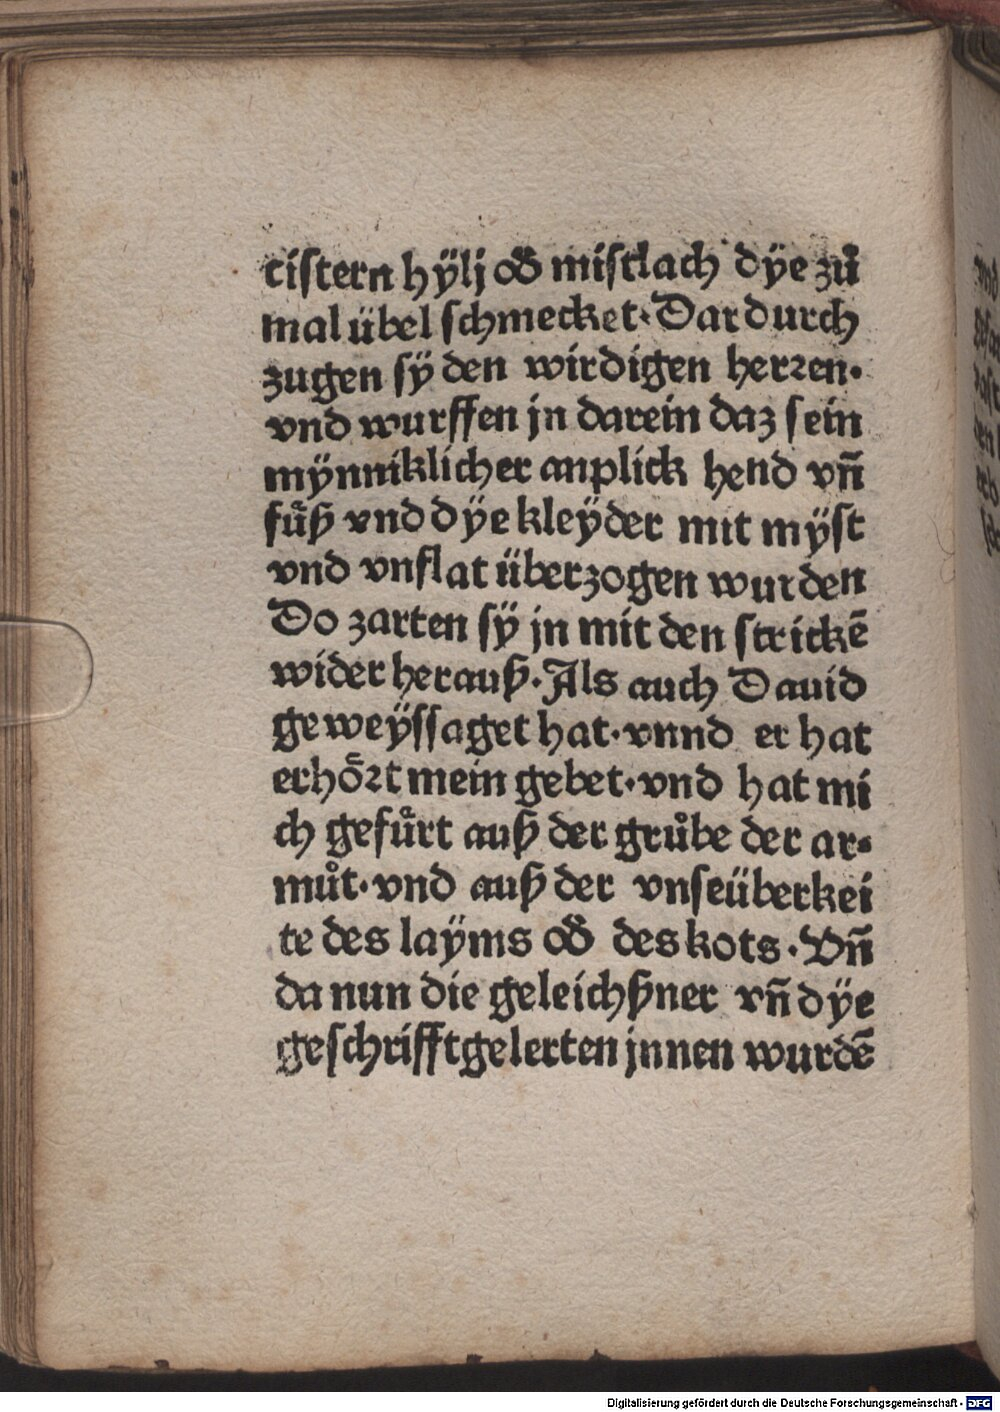 cistern hÿlj od᷑ mistlach dÿe zů
mal übel schmecket· Dardurch
zugen sÿ den wirdigen herꝛen·
vnd wurffen jn darein daz sein
mÿnniklicher anplick hend vn̄
fuͤß vnd dÿe kleÿder mit mÿst
vnd vnflat überzogen wurden
Do zarten sÿ jn mit den strickē
wider herauß· Als auch Dauid
geweÿssaget hat· vnnd er hat
erhoͤꝛt mein gebet· vnd hat mi
ch gefuͤrt auß der grůbe der ar⸗
můt· vnd auß der vnseüberkei
te des laÿms od᷑ des kots· Vn̄
da nun die geleichßner vn̄ dÿe
geschrifftgelerten jnnen wurdē
Digitalisierung gefördert durch die Deutsche Forschungsgemeinschaft - DFG